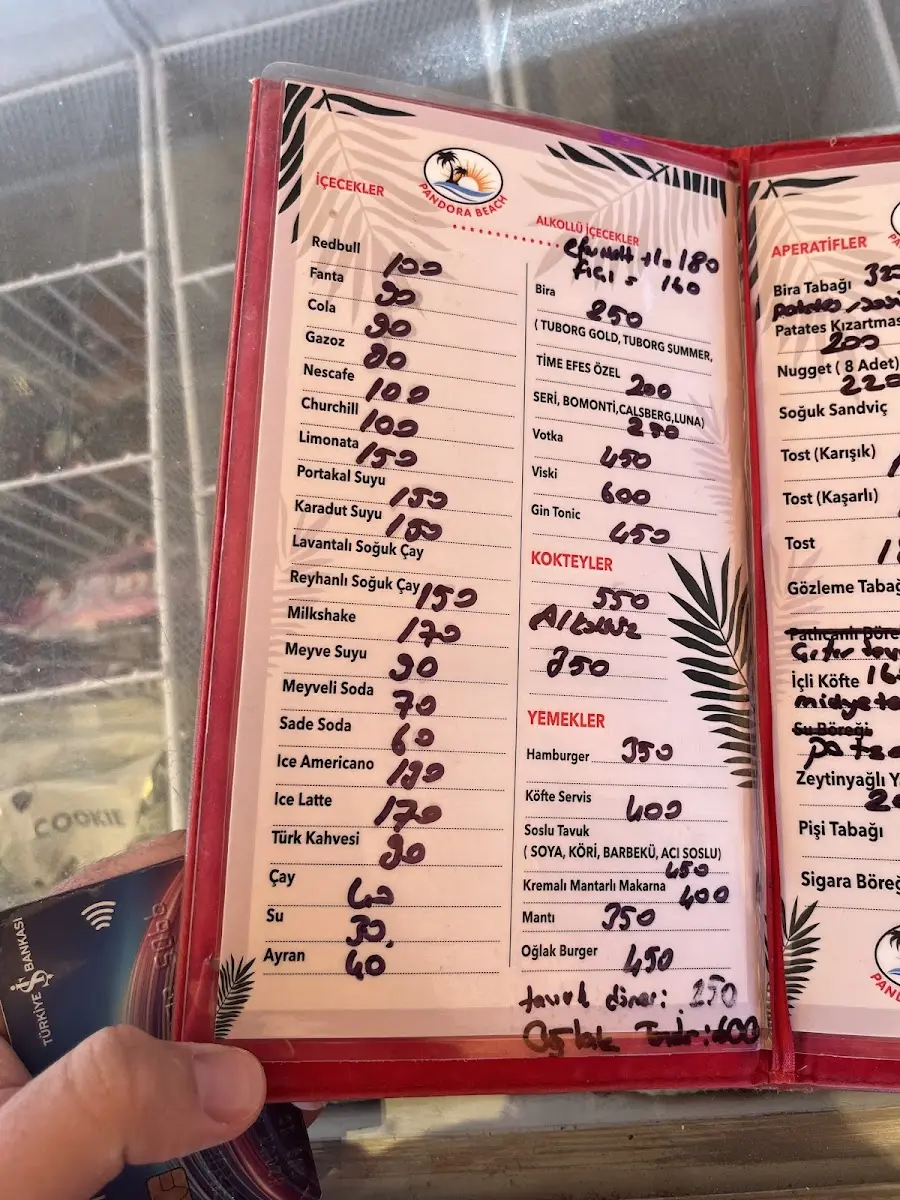 PANDORA BEACH
İÇECEKLER
Redbull 100
Fanta 90
Cola 90
Gazoz 80
Nescafe 100
Churchill 100
Limonata 150
Portakal Suyu 150
Karadut Suyu 150
Lavantalı Soğuk Çay
Reyhanlı Soğuk Çay 150
Milkshake 170
Meyve Suyu 90
Meyveli Soda 70
Sade Soda 60
Ice Americano 190
Ice Latte 170
Türk Kahvesi 90
Çay 40
Su 30
Ayran 40
ALKOLLÜ İÇECEKLER
180
fıçı 160
Bira 250
( TUBORG GOLD, TUBORG SUMMER,
TİME EFES ÖZEL 200
SERİ, BOMONTİ,CALSBERG,LUNA)
250
Votka 450
Viski 600
Gin Tonic 450
KOKTEYLER
550
350
YEMEKLER
Hamburger 350
Köfte Servis 400
Soslu Tavuk
( SOYA, KÖRİ, BARBEKÜ, ACI SOSLU)
450
Kremalı Mantarlı Makarna 400
Mantı 350
Oğlak Burger 450
tavuk döner: 250
:600
APERATİFLER
Bira Tabağı
patates
Patates Kızartmas
200
Nugget ( 8 Adet)
220
Soğuk Sandviç
Tost (Karışık)
Tost (Kaşarlı)
Tost
Gözleme Tabağ
İçli Köfte
midye
Su Böreği
Zeytinyağlı Y
Pişi Tabağı
Sigara Böreğ
COOKIE
TÜRKİYE İŞ BANKASI